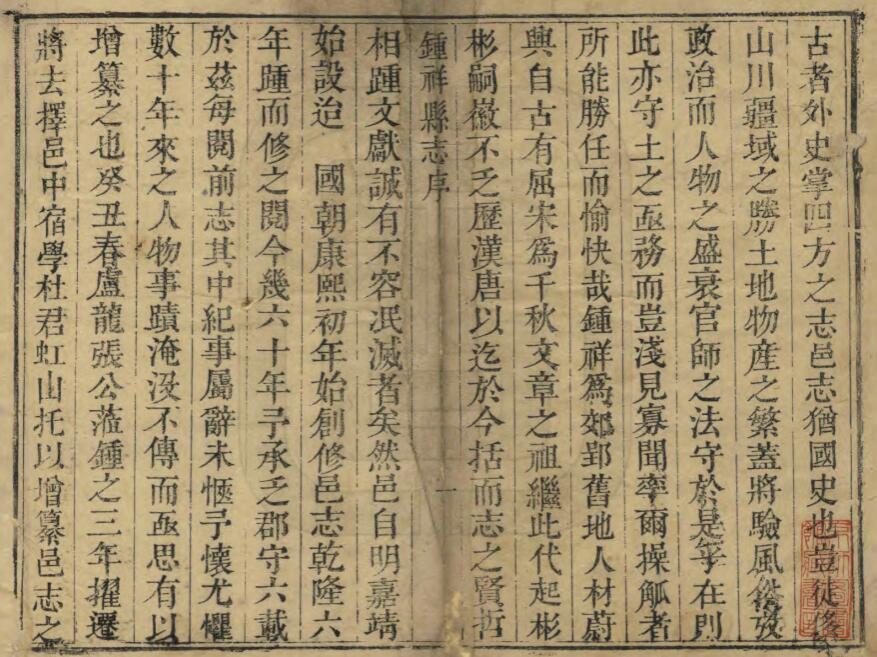 古者外史掌四方之志邑志猶國史也豈徒侈
山川疆域之勝土地物産之繁蓋將驗風俗攷
政治而人物之盛衰官師之法守於是乎在則
此亦守土之亟務而豈淺見寡聞率爾操觚者
所能勝任而愉快哉鍾祥爲郊郢舊地人材蔚
興自古有屈宋爲千秋文章之祖繼此代起彬
彬嗣徽不乏歷漢唐以迄於今括而志之賢哲
鍾祥縣志序
一
相踵文獻誠有不容泯滅者矣然邑自明嘉靖
始設迨 國朝康熙初年始創修邑志乾隆六
年踵而修之閱今幾六十年予承乏郡守六載
於茲每閱前志其中紀事屬辭未愜予懷尤懼
數十年來之人物事蹟淹沒不傳而亟思有以
增纂之也癸丑春盧龍張公蒞鍾之三年擢遷
將去擇邑中宿學杜君虹山托以增纂邑志之